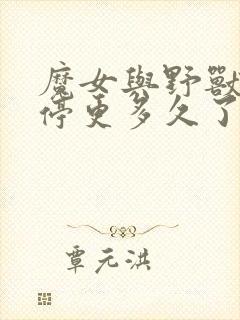 魔女與野獸
停更多久了
覃元洪